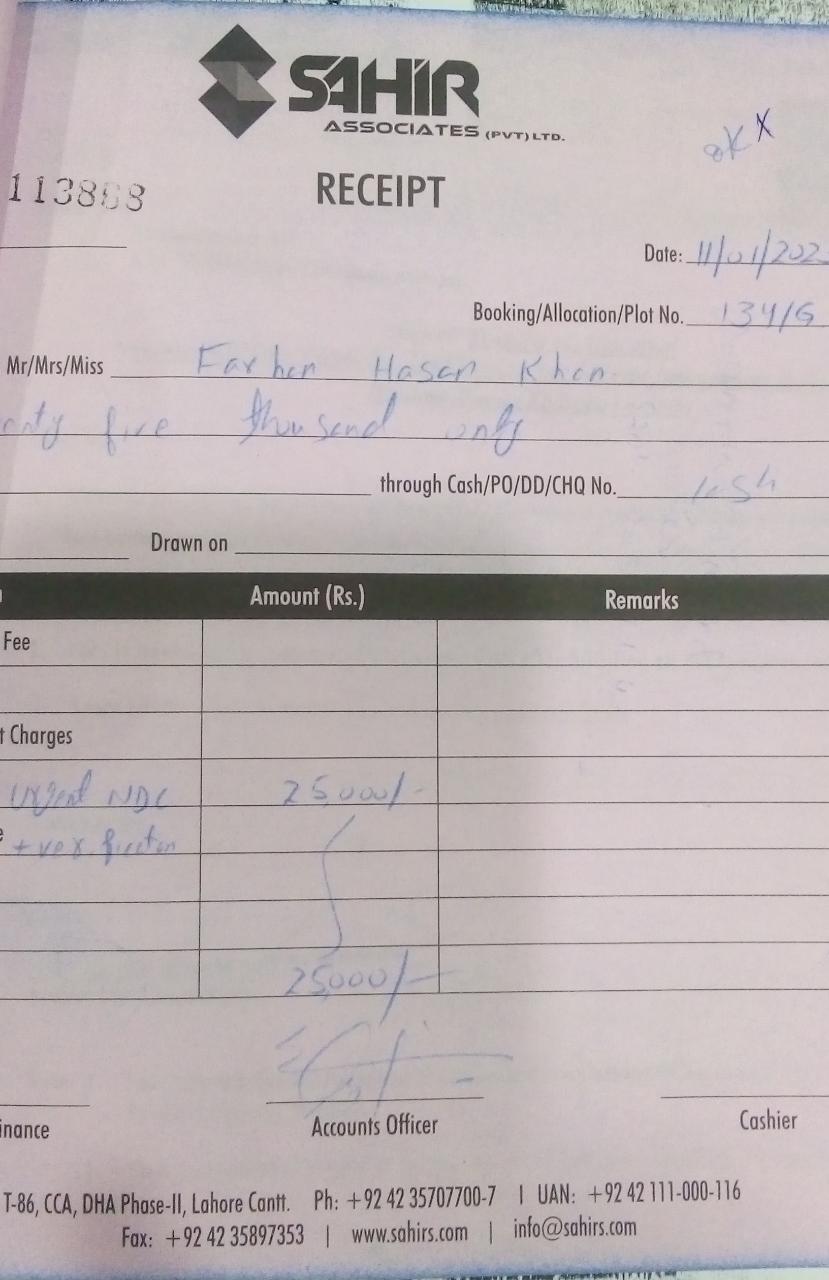 SAHIR
ASSOCIATES (PVT) LTD.
113868
RECEIPT
Date: 11/01/202
Booking/Allocation/Plot No. 134/G
Mr/Mrs/Miss Farhan Hasan Khan
enty five thousand only
through Cash/PO/DD/CHQ No. Cash
Drawn on
Amount (Rs.) Remarks
Fee
t Charges
Urgent NDC 25,000/-
+ verification
25,000/-
inance Accounts Officer Cashier
T-86, CCA, DHA Phase-II, Lahore Cantt. Ph: +92 42 35707700-7 | UAN: +92 42 111-000-116
Fax: +92 42 35897353 | www.sahirs.com | info@sahirs.com